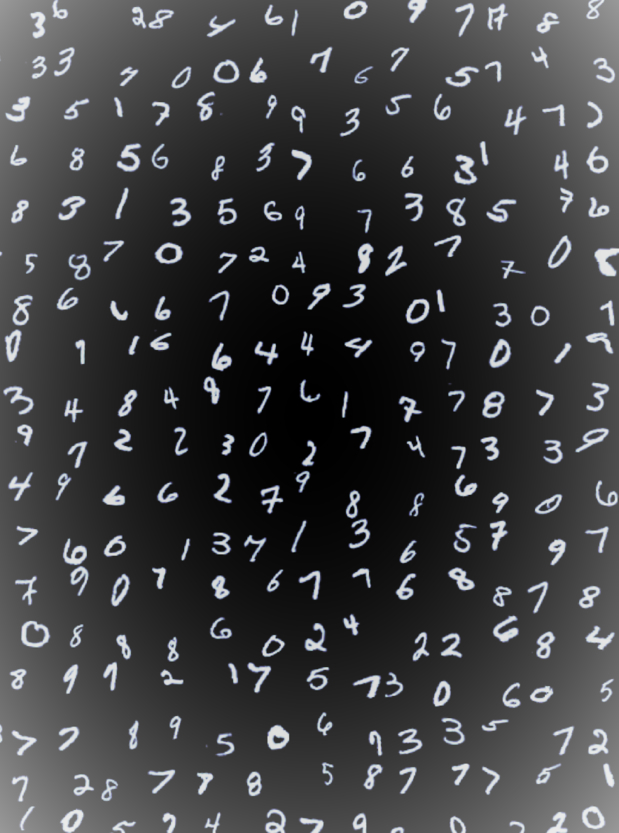 3 6 2 8 4 6 1 0 9 7 1 7 8 8
3 3 7 0 0 6 7 6 7 5 7 4 3
3 5 1 7 8 9 9 3 5 6 4 7 2
6 8 5 6 8 3 7 6 6 3 1 4 6
8 3 1 3 5 6 9 7 3 8 5 7 6
5 8 7 0 7 2 4 8 2 7 7 0
8 6 6 6 7 0 9 3 0 1 3 0 1
0 1 1 6 6 4 4 4 9 7 0 1 9
3 4 8 4 8 7 6 1 7 7 8 7 3
9 7 2 2 3 0 2 7 4 7 3 3 9
4 9 6 6 2 7 9 8 8 6 9 0 6
7 6 0 1 3 7 1 3 6 5 7 9 7
7 9 0 7 8 6 7 7 6 8 8 7 8
0 8 8 8 6 0 2 4 2 2 6 8 4
8 9 9 2 1 7 5 7 3 0 6 0 5
7 7 8 9 5 0 6 9 3 3 5 7 2
7 2 8 7 7 8 5 8 7 7 7 5 1
1 0 5 4 2 7 9 2 0